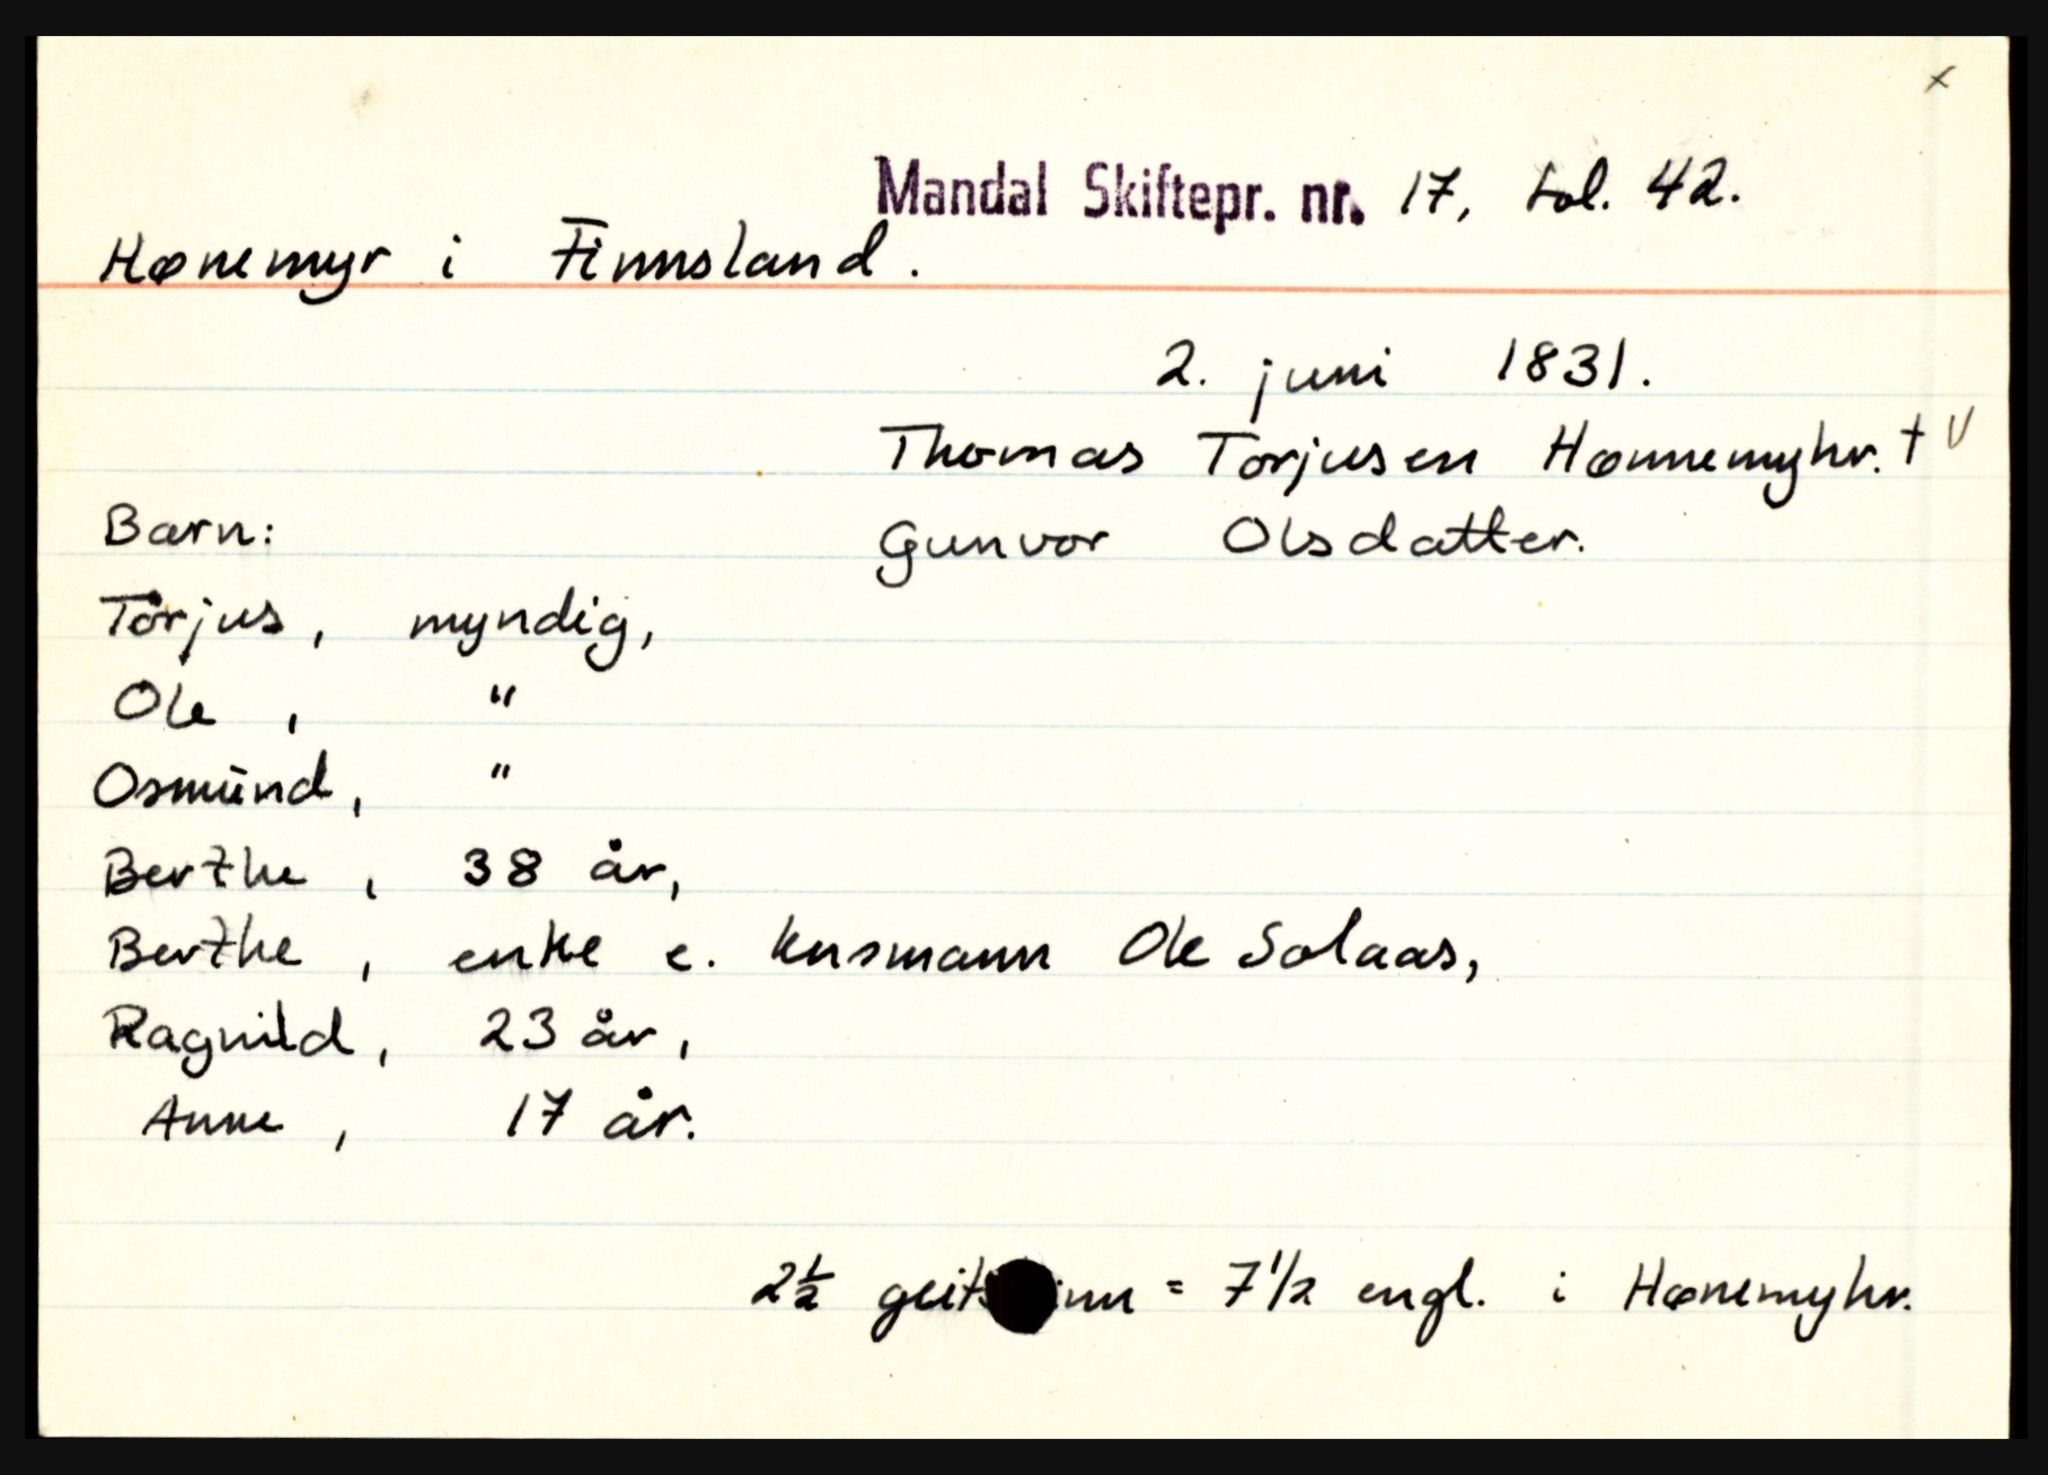 x
Mandal Skiftepr. nr. 17, fol. 42.
Hønemyr i Finnsland.
2. juni 1831.
Thomas Torjusen Hønnemyhr. † V
Gunvor Olsdatter.
Barn:
Torjus, myndig,
Ole, "
Osmund, "
Berthe, 38 år,
Berthe, enke e. husmann Ole Solaas,
Ragnild, 23 år,
Anne, 17 år.
2½ = 7 1/2 engl. i Hønemyhr.